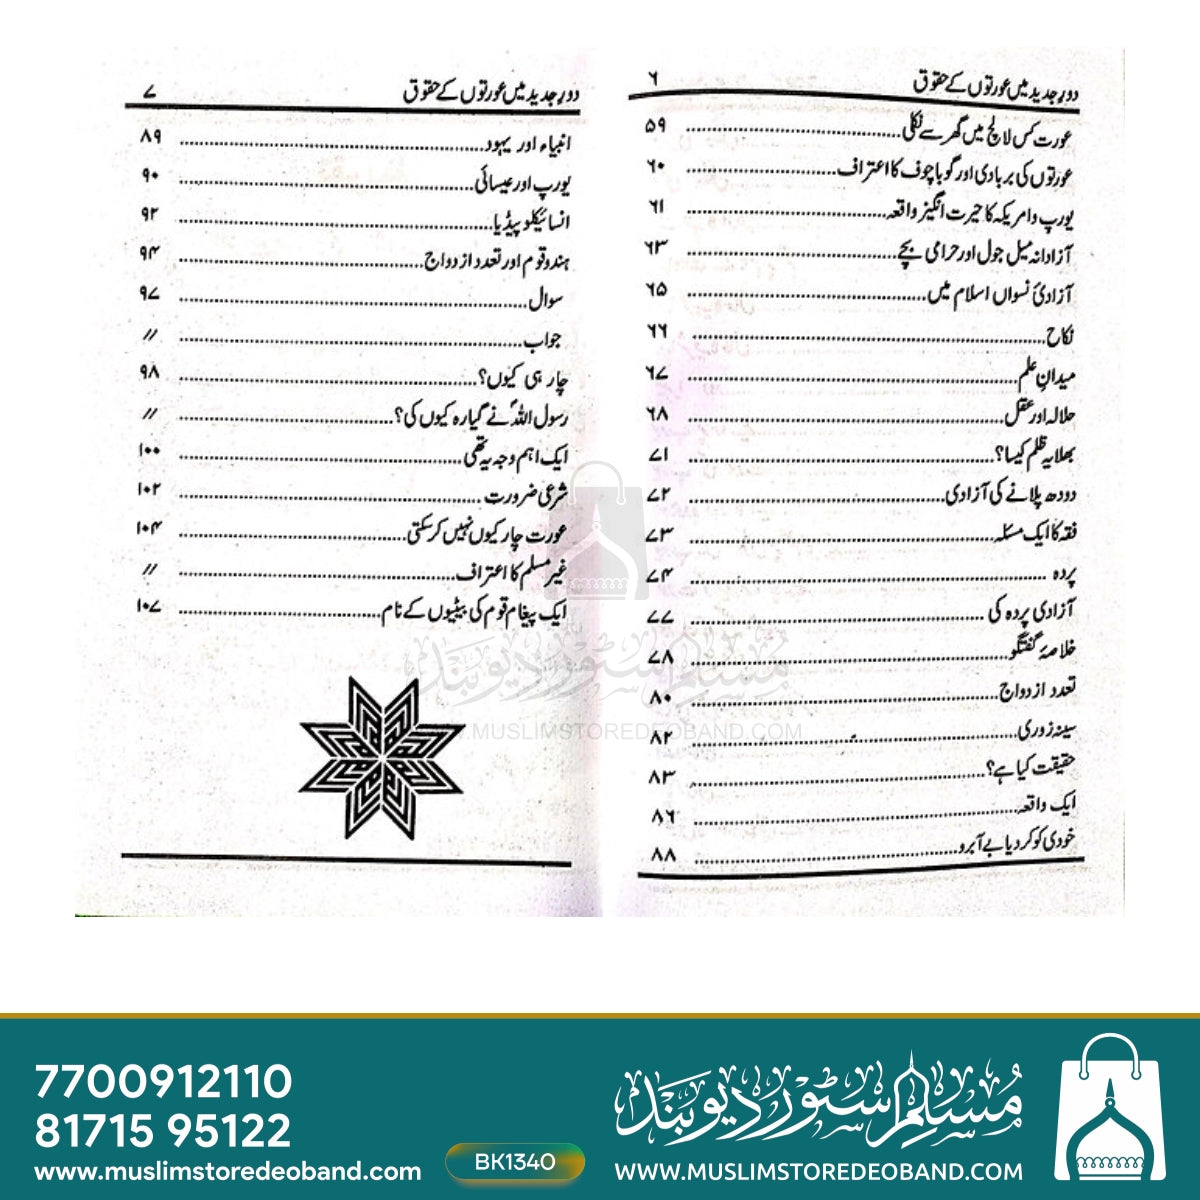 دورِ جدید میں عورتوں کے حقوق ۶
عورت کس لالچ میں گھر سے نکلی ۵۹
عورتوں کی بربادی اور گوباچوف کا اعتراف ۶۰
یورپ و امریکہ کا حیرت انگیز واقعہ ۶۱
آزادانہ میل جول اور حرامی بچے ۶۳
آزادیٔ نسواں اسلام میں ۶۵
نکاح ۶۶
میدانِ علم ۶۷
حلالہ اور عقل ۶۸
بھلا یہ ظلم کیسا؟ ۷۱
دودھ پلانے کی آزادی ۷۲
فقہ کا ایک مسئلہ ۷۳
پردہ ۷۴
آزادی پردہ کی ۷۷
خلاصۂ گفتگو ۷۸
تعدد ازدواج ۸۰
سینہ زوری ۸۲
حقیقت کیا ہے؟ ۸۳
ایک واقعہ ۸۶
خودی کو کر دیا بے آبرو ۸۸
دورِ جدید میں عورتوں کے حقوق ۷
انبیاء اور یہود ۸۹
یورپ اور عیسائی ۹۰
انسائیکلوپیڈیا ۹۲
ہندو قوم اور تعدد ازدواج ۹۴
سوال ۹۷
جواب //
چار ہی کیوں؟ ۹۸
رسول اللہؐ نے گیارہ کیوں کی؟ //
ایک اہم وجہ یہ تھی ۱۰۰
شرعی ضرورت ۱۰۲
عورت چار کیوں نہیں کر سکتی ۱۰۴
غیر مسلم کا اعتراف //
ایک پیغام قوم کی بیٹیوں کے نام ۱۰۷
مسلم سٹور دیوبند
WWW.MUSLIMSTOREDEOBAND.COM
7700912110
81715 95122
www.muslimstoredeoband.com
BK1340
مسلم سٹور دیوبند
WWW.MUSLIMSTOREDEOBAND.COM